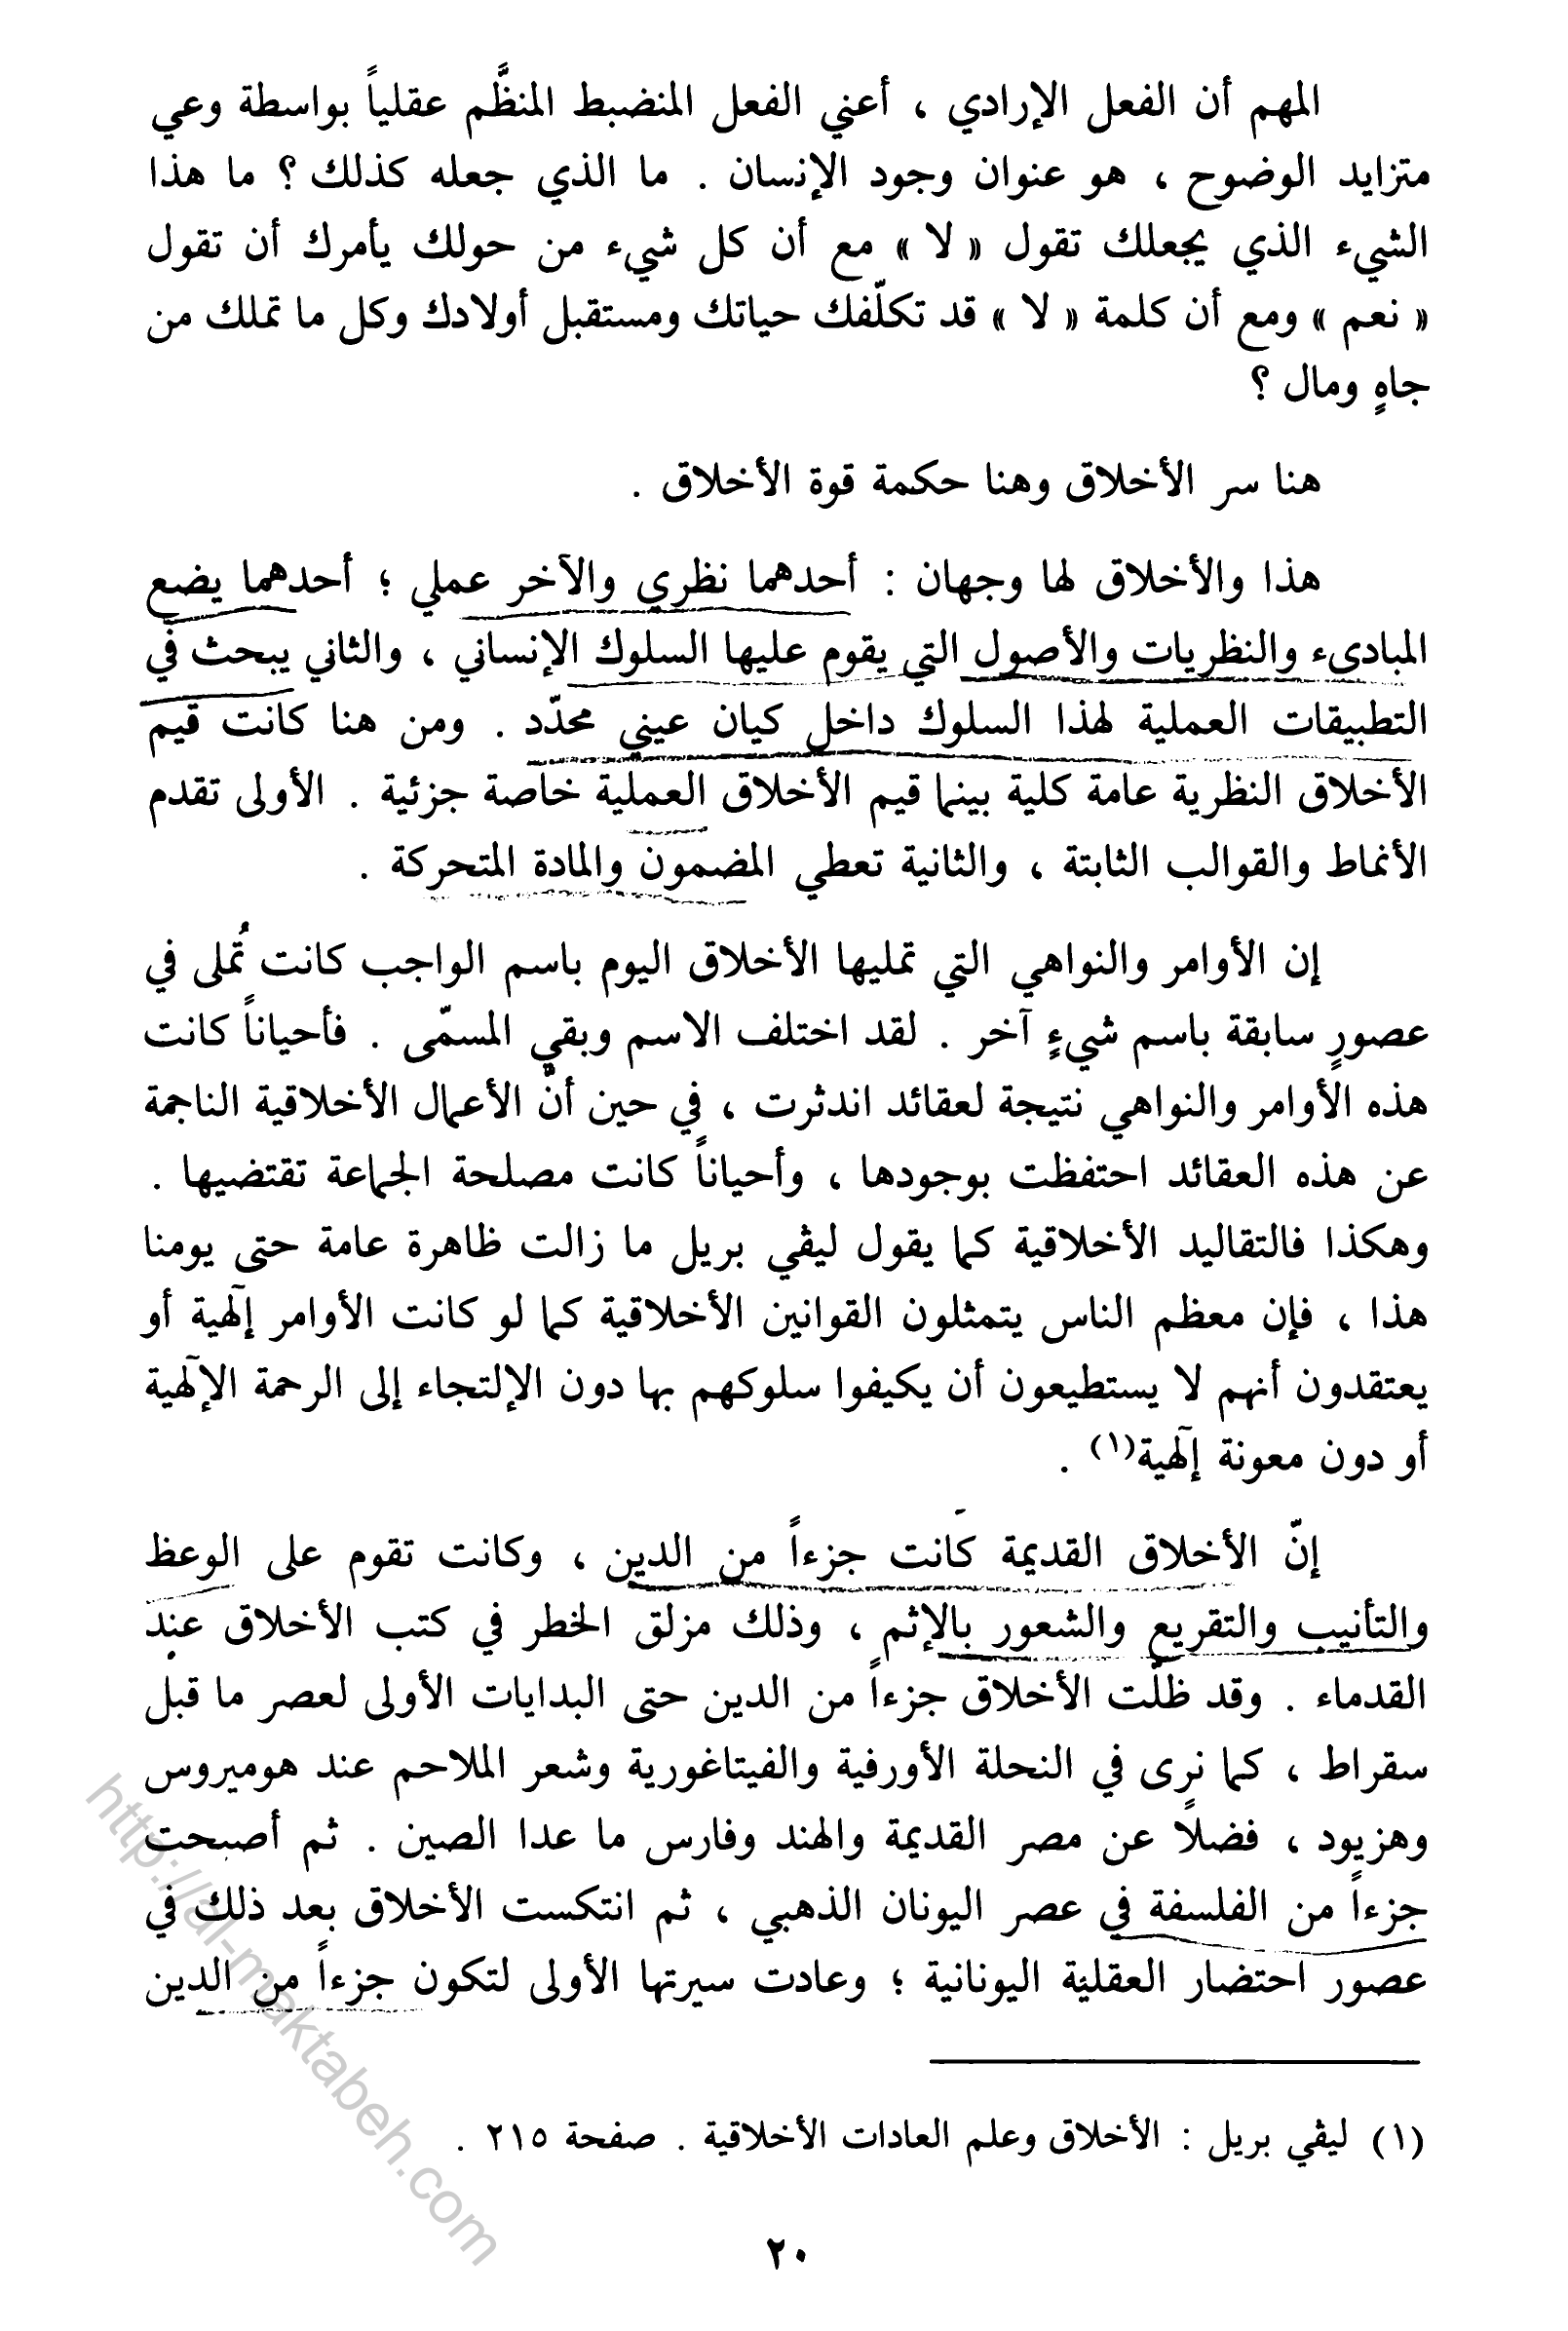 المهم أن الفعل الإرادي ، أعني الفعل المنضبط المنظَّم عقلياً بواسطة وعي
متزايد الوضوح ، هو عنوان وجود الإنسان . ما الذي جعله كذلك ؟ ما هذا
الشيء الذي يجعلك تقول « لا » مع أن كل شيء من حولك يأمرك أن تقول
« نعم » ومع أن كلمة « لا » قد تكلّفك حياتك ومستقبل أولادك وكل ما تملك من
جاهٍ ومال ؟
هنا سر الأخلاق وهنا حكمة قوة الأخلاق .
هذا والأخلاق لها وجهان : أحدهما نظري والآخر عملي ؛ أحدهما يضع
المبادىء والنظريات والأصول التي يقوم عليها السلوك الإنساني ، والثاني يبحث في
التطبيقات العملية لهذا السلوك داخل كيان عيني محدّد . ومن هنا كانت قيم
الأخلاق النظرية عامة كلية بينما قيم الأخلاق العملية خاصة جزئية . الأولى تقدم
الأنماط والقوالب الثابتة ، والثانية تعطي المضمون والمادة المتحركة .
إن الأوامر والنواهي التي تمليها الأخلاق اليوم باسم الواجب كانت تُملى في
عصورٍ سابقة باسم شيءٍ آخر . لقد اختلف الاسم وبقي المسمّى . فأحياناً كانت
هذه الأوامر والنواهي نتيجة لعقائد اندثرت ، في حين أنّ الأعمال الأخلاقية الناجمة
عن هذه العقائد احتفظت بوجودها ، وأحياناً كانت مصلحة الجماعة تقتضيها .
وهكذا فالتقاليد الأخلاقية كما يقول ليڤي بريل ما زالت ظاهرة عامة حتى يومنا
هذا ، فإن معظم الناس يتمثلون القوانين الأخلاقية كما لو كانت الأوامر إلٓهية أو
يعتقدون أنهم لا يستطيعون أن يكيفوا سلوكهم بها دون الإلتجاء إلى الرحمة الإلٓهية
أو دون معونة إلٓهية(١) .
إنّ الأخلاق القديمة كانت جزءاً من الدين ، وكانت تقوم على الوعظ
والتأنيب والتقريع والشعور بالإثم ، وذلك مزلق الخطر في كتب الأخلاق عند
القدماء . وقد ظلّت الأخلاق جزءاً من الدين حتى البدايات الأولى لعصر ما قبل
سقراط ، كما نرى في النحلة الأورفية والفيتاغورية وشعر الملاحم عند هوميروس
وهزيود ، فضلاً عن مصر القديمة والهند وفارس ما عدا الصين . ثم أصبحت
جزءاً من الفلسفة في عصر اليونان الذهبي ، ثم انتكست الأخلاق بعد ذلك في
عصور احتضار العقلية اليونانية ؛ وعادت سيرتها الأولى لتكون جزءاً من الدين
(١) ليڤي بريل : الأخلاق وعلم العادات الأخلاقية . صفحة ٢١٥ .
٢٠
http://al-maktabeh.com